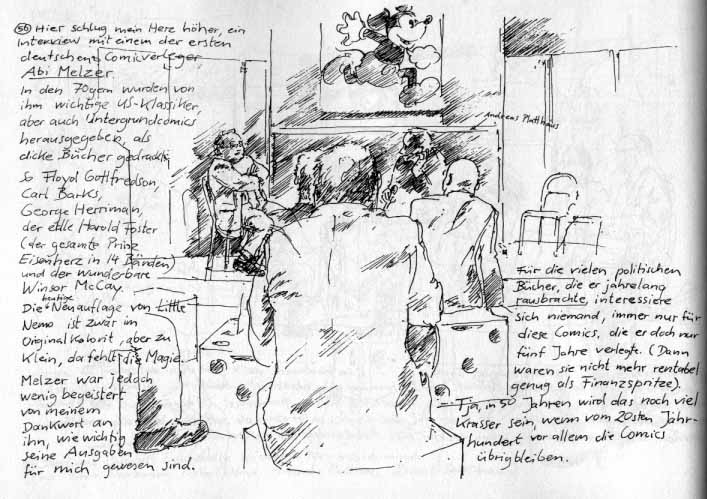 56 Hier schlug mein Herz höher, ein
Interview mit einem der ersten
deutschen Comicverleger,
Abi Melzer.
In den 70gern wurden von
ihm wichtige US-Klassiker,
aber auch Untergrundcomics
herausgegeben, als
dicke Bücher gedruckt,
so Floyd Gottfredson,
Carl Barks,
George Herriman,
der edle Harold Foster
(der gesamte Prinz
Eisenherz in 14 Bänden)
und der wunderbare
Winsor McCay.
Die heutige Neuauflage von Little
Nemo ist zwar im
Original Kolorit, aber zu
klein, da fehlt die Magie.
Melzer war jedoch
wenig begeistert
von meinem
Dankwort an
ihn, wie wichtig
seine Ausgaben
für mich gewesen sind.
Andreas Platthaus
Für die vielen politischen
Bücher, die er jahrelang
rausbrachte, interessiere
sich niemand, immer nur für
diese Comics, die er doch nur
fünf Jahre verlegte. (Dann
waren sie nicht mehr rentabel
genug als Finanzspritze).
Tja, in 50 Jahren wird das noch viel
krasser sein, wenn vom 20sten Jahr-
hundert vor allem die Comics
übrigbleiben.